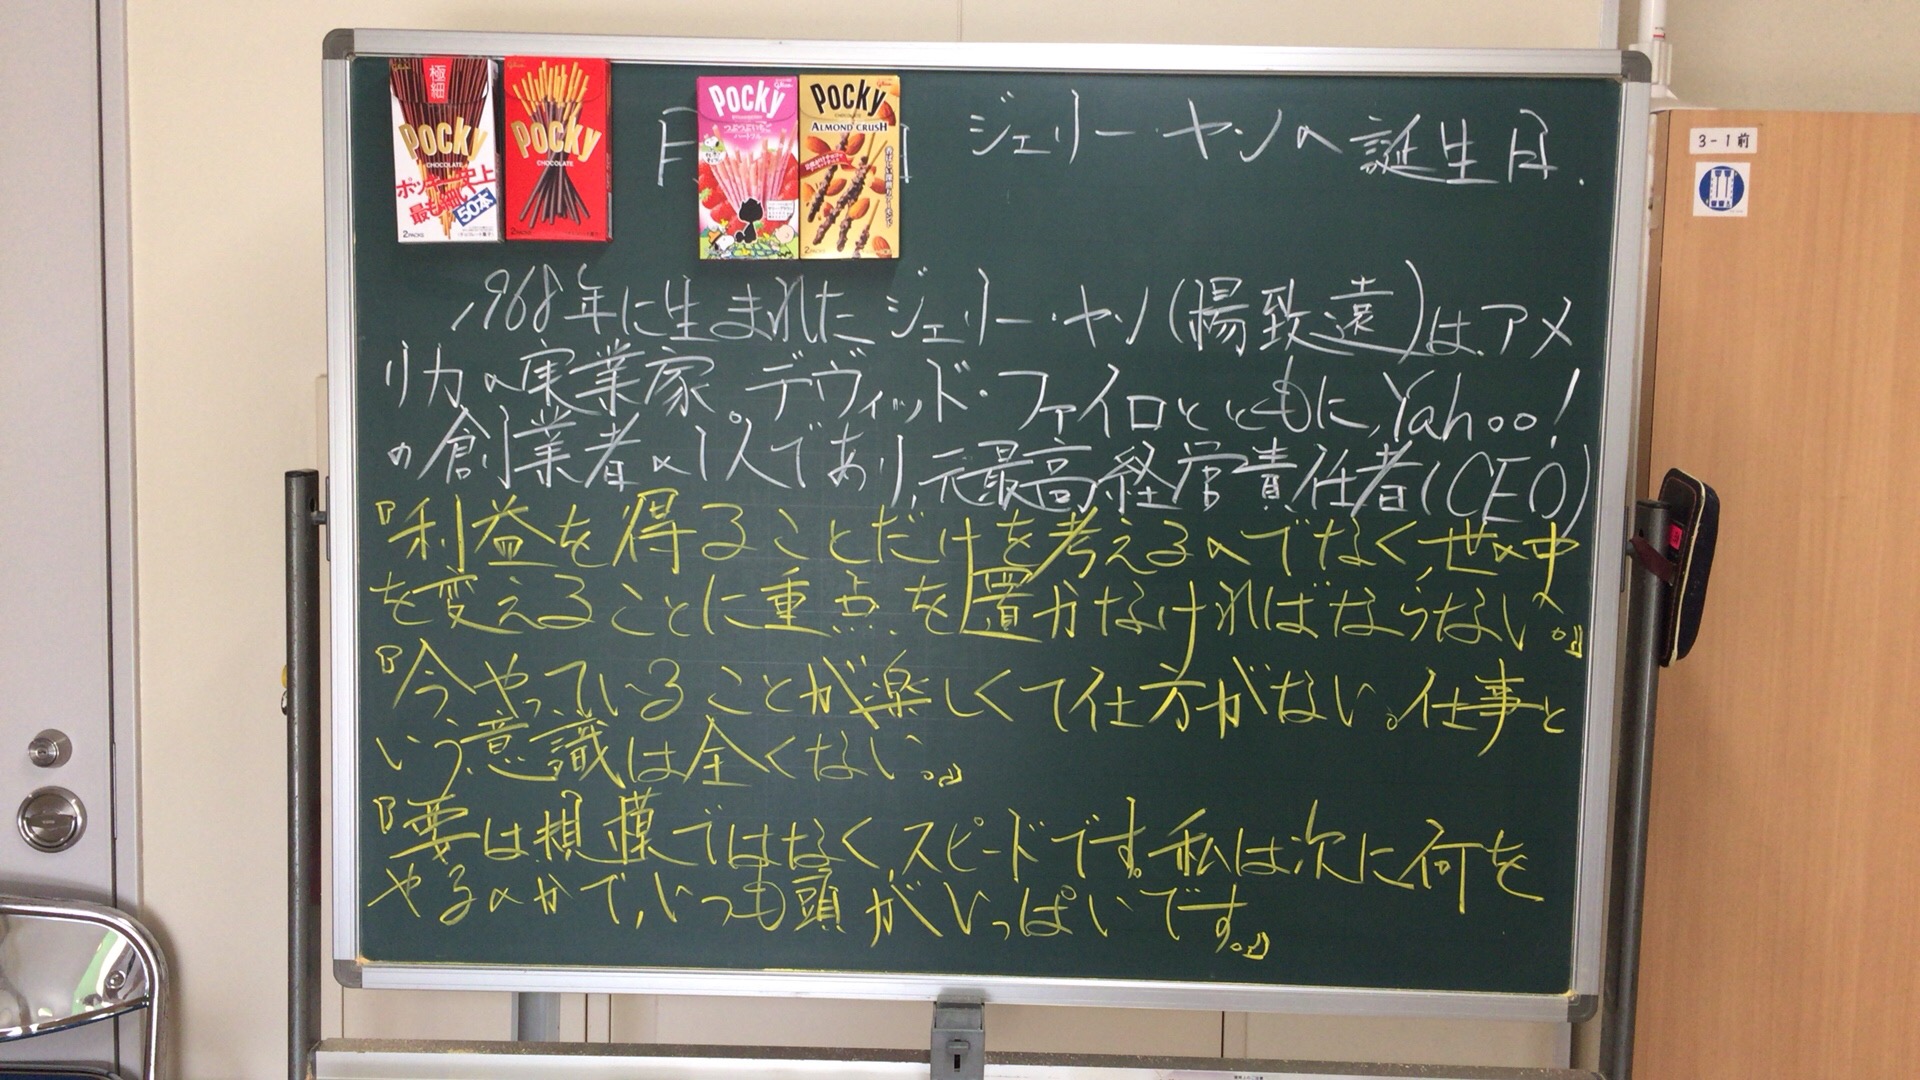 極細
Pocky
CHOCOLATE
ポッキー史上
最も細い
50本
2PACKS
Pocky
CHOCOLATE
Pocky
つぶつぶいちご
ハートフル
Pocky
CHOCOLATE
ALMOND CRUSH
月 日 ジェリー・ヤンの誕生日.
1968年に生まれたジェリー・ヤン(楊致遠)は、アメ
リカの実業家。デヴィッド・ファイロとともに、Yahoo!
の創業者の1人であり、元最高経営責任者(CEO)
『利益を得ることだけを考えるのでなく、世の中
を変えることに重点を置かなければならない。』
『今やっていることが楽しくて仕方がない。仕事と
いう意識は全くない。』
『要は規模ではなくスピードです。私は次に何を
やるのかで、いつも頭がいっぱいです。』
3-1前